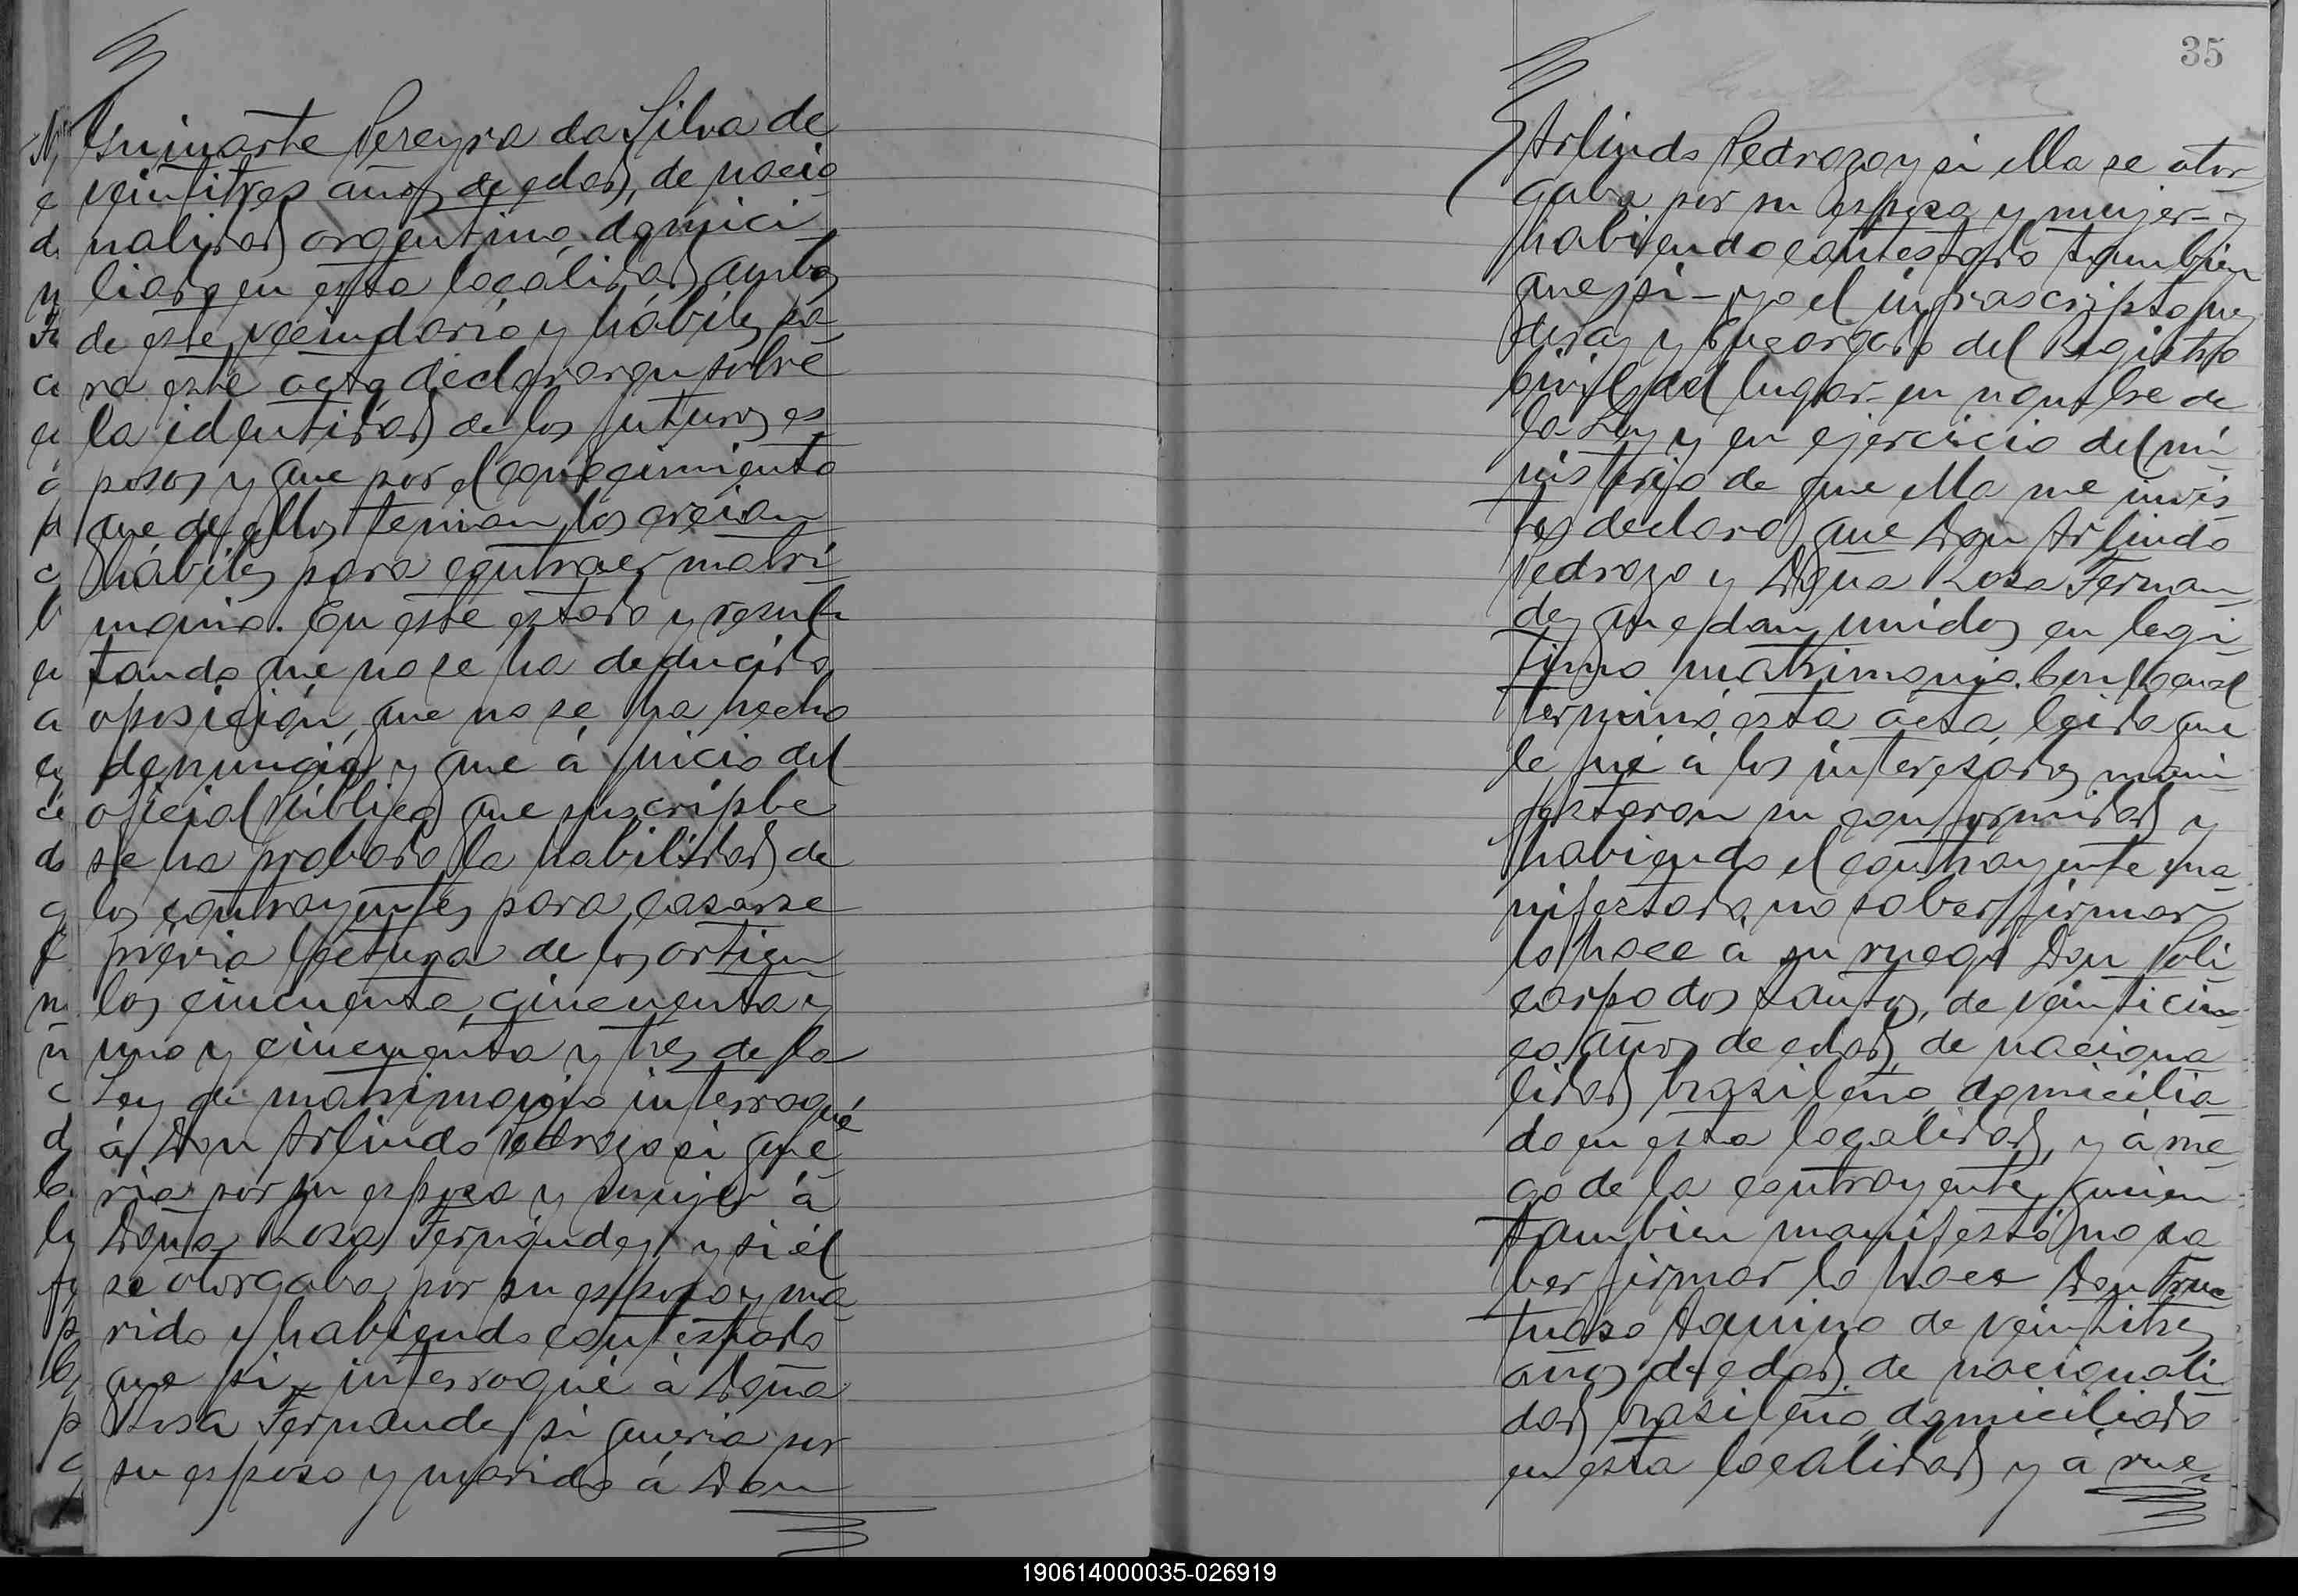 Guimarte Pereyra da Silva de
veintitres años de edad, de nacio
nalidad argentino, domici
liado en esta localidad ambos
de este vecindario y hábiles pa
ra este acto, declararon sobre
la identidad de los futuros es
posos y que por el conocimiento
que de ellos tenian, los creian
hábiles para contraer matri-
monio. En este estado y resul-
tando que no se ha deducido
oposición, que no se ha hecho
denuncia y que á juicio del
oficial Público que suscripbe
se ha probado la habilidad de
los contrayentes para casarse
prévia lectura de los articu
los cincuenta, cincuenta y
uno y cincuenta y tres de la
Ley de matrimonio interrogué
á Don Arlindo Pedrozo si que
ria por su esposa y mujer á
Doña Rosa Fernández y si él
se otorgaba por su esposo y ma
rido y habiendo contestado
que si, interrogué à Doña
Rosa Fernandez si queria por
su esposo y marido á Don
35
Arlindo Pedrozo y si ella se otor-
gaba por su esposa y mujer- y
habiendo contestado tambien
que si- yo el infrascripto juez
de Paz y Encargado del Registro
Civil del lugar- en nombre de
la Ley y en ejercicio del mi-
nisterio de que ella me invis
te, declaro que Don Arlindo
Pedrozo y Doña Rosa Fernan
dez quedan unidos en legi
timo matrimonio. Con lo cual
terminó esta acta, leida que
le fué à los interesados mani-
festaron su conformidad y
habiendo el contrayente ma-
nifestado no saber firmar
lo hace à su ruego Don Poli
carpo dos Santos, de veinticin-
co años de edad, de naciona
lidad brasileño, domicilia-
do en esta localidad, y à rue-
go de la contrayente, quien
tambien manifestó no sa
ber firmar lo hace Don Fruc
tuoso Aquino de veintitres
años de edad, de nacionali
dad brasileño, domiciliado
en esta localidad y à rue-
190614000035-026919